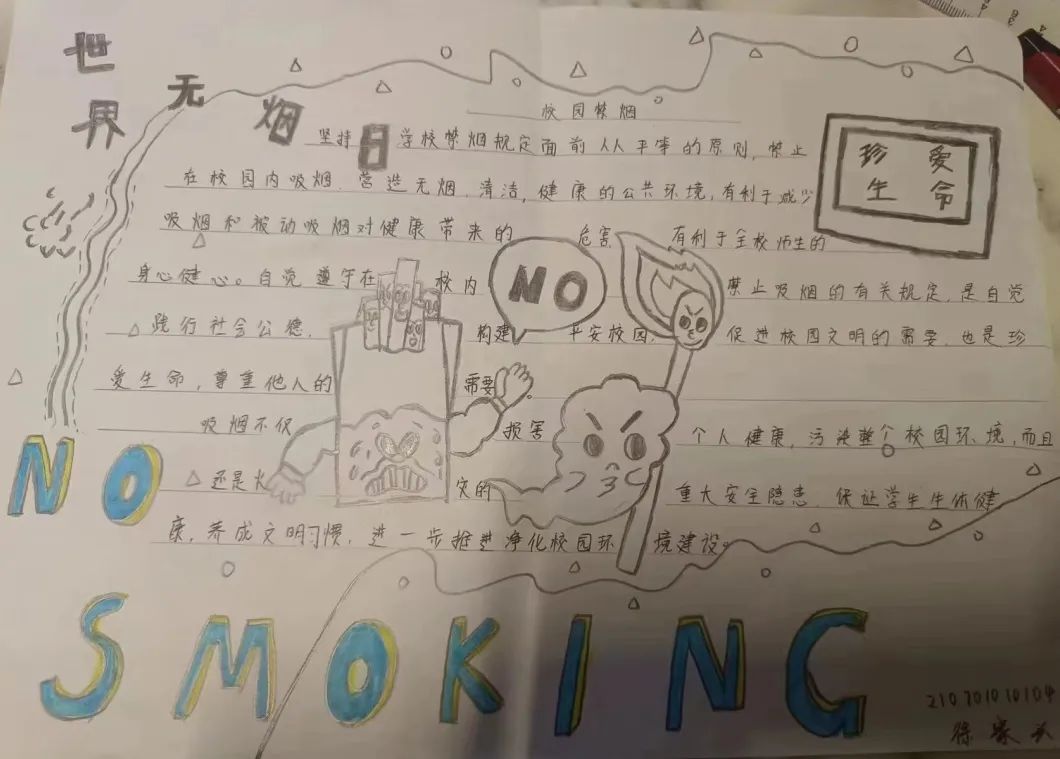 世界无烟日
校园禁烟
坚持学校禁烟规定面前人人平等的原则，禁止
在校园内吸烟。营造无烟，清洁，健康的公共环境，有利于减少
吸烟和被动吸烟对健康带来的危害 有利于全校师生的
身心健心。自觉遵守在校内禁止吸烟的有关规定，是自觉
践行社会公德，构建平安校园，促进校园文明的需要，也是珍
爱生命，尊重他人的需要。
吸烟不仅损害个人健康，污染整个校园环境，而且
还是火灾的重大安全隐患，保证学生生体健
康，养成文明习惯，进一步推进净化校园环境建设。
珍爱
生命
NO
NO
SMOKING
210701010104
徐家